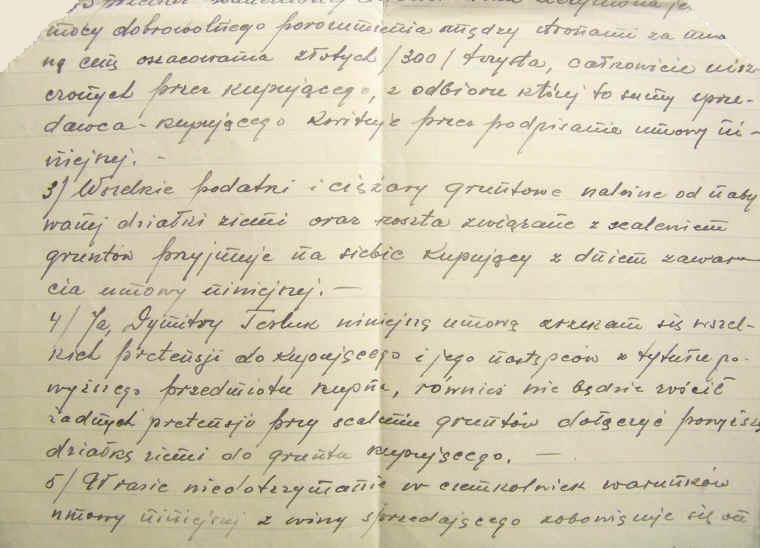 mocy dobrowolnego porozumienia między stronami za
ną cenę oszacowania złotych /300/ trzysta, całkowicie uisz-
czonych przez kupującego, z odbioru której to sumy sprze-
dawca - kupującego kwituje przez podpisanie umowy ni-
niejszej. -
3/ Wszelkie podatki i ciężary gruntowe należne od naby
wanej działki ziemi oraz koszta związane z scaleniem
gruntów przyjmuje na siebie kupujący z dniem zawar-
cia umowy niniejszej. -
4/ Ja, Dymitry niniejszą umową zrzekam się wszel-
kich pretensji do kupującego i jego następców z tytułu po-
wyższego przedmiotu kupna, również nie będzie rościć
żadnych pretensji przy scaleniu gruntów dołączyć powyższą
działkę ziemi do gruntu kupującego. -
5/ W razie niedotrzymania w czemkolwiek warunków
umowy niniejszej z winy sprzedającego zobowiązuje się on